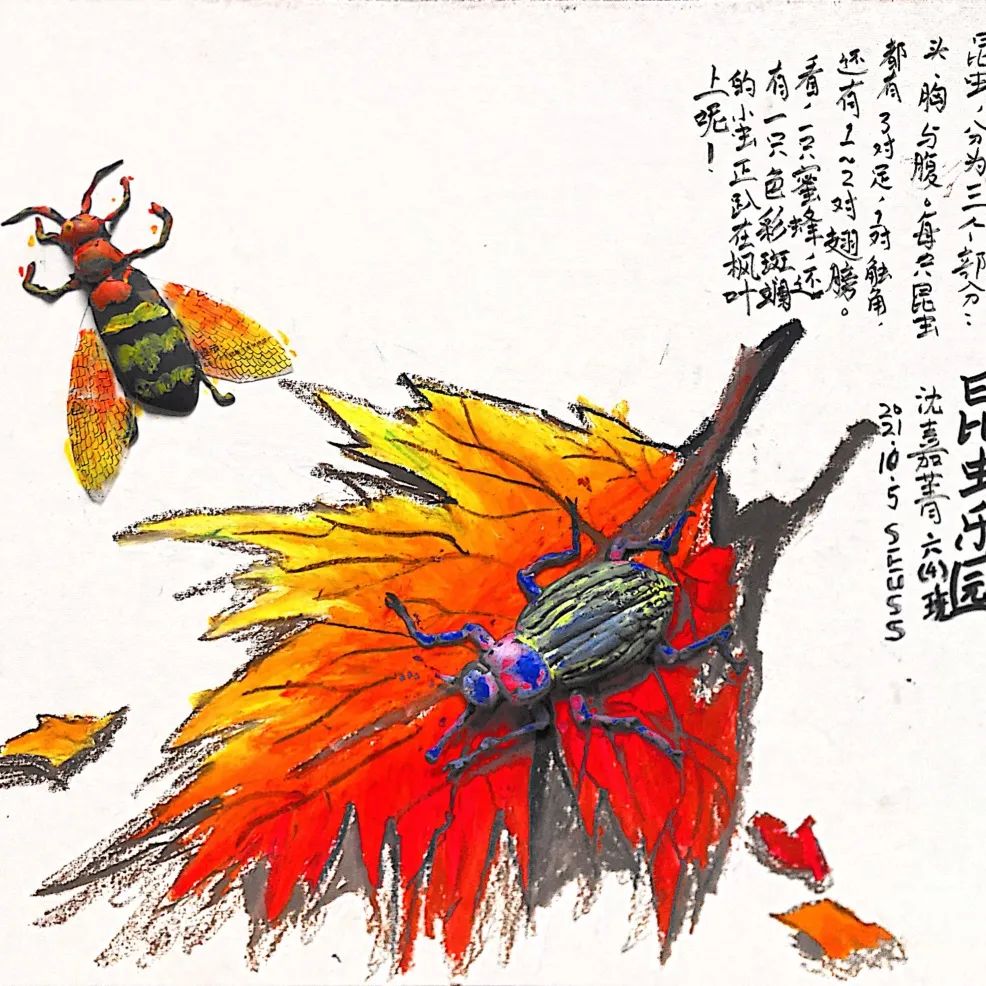 昆虫,分为三个部分:
头、胸与腹。每只昆虫
都有3对足,1对触角,
还有1~2对翅膀。
看,一只蜜蜂,还
有一只色彩斑斓
的小虫正趴在枫叶
上呢!
昆虫乐园
沈嘉菁 六(4)班
2021.10.5